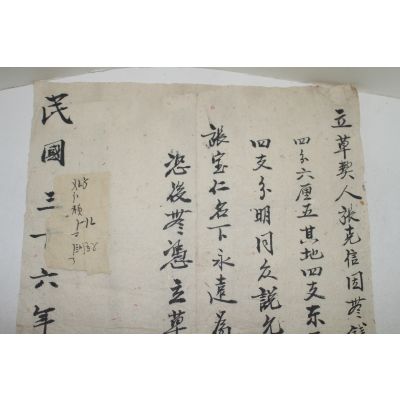 立草契人張克信因無錢
四分六厘五其地四支东
四支分明同众説允
張宝仁名下永遠為
恐後無憑立草
民國三十六年